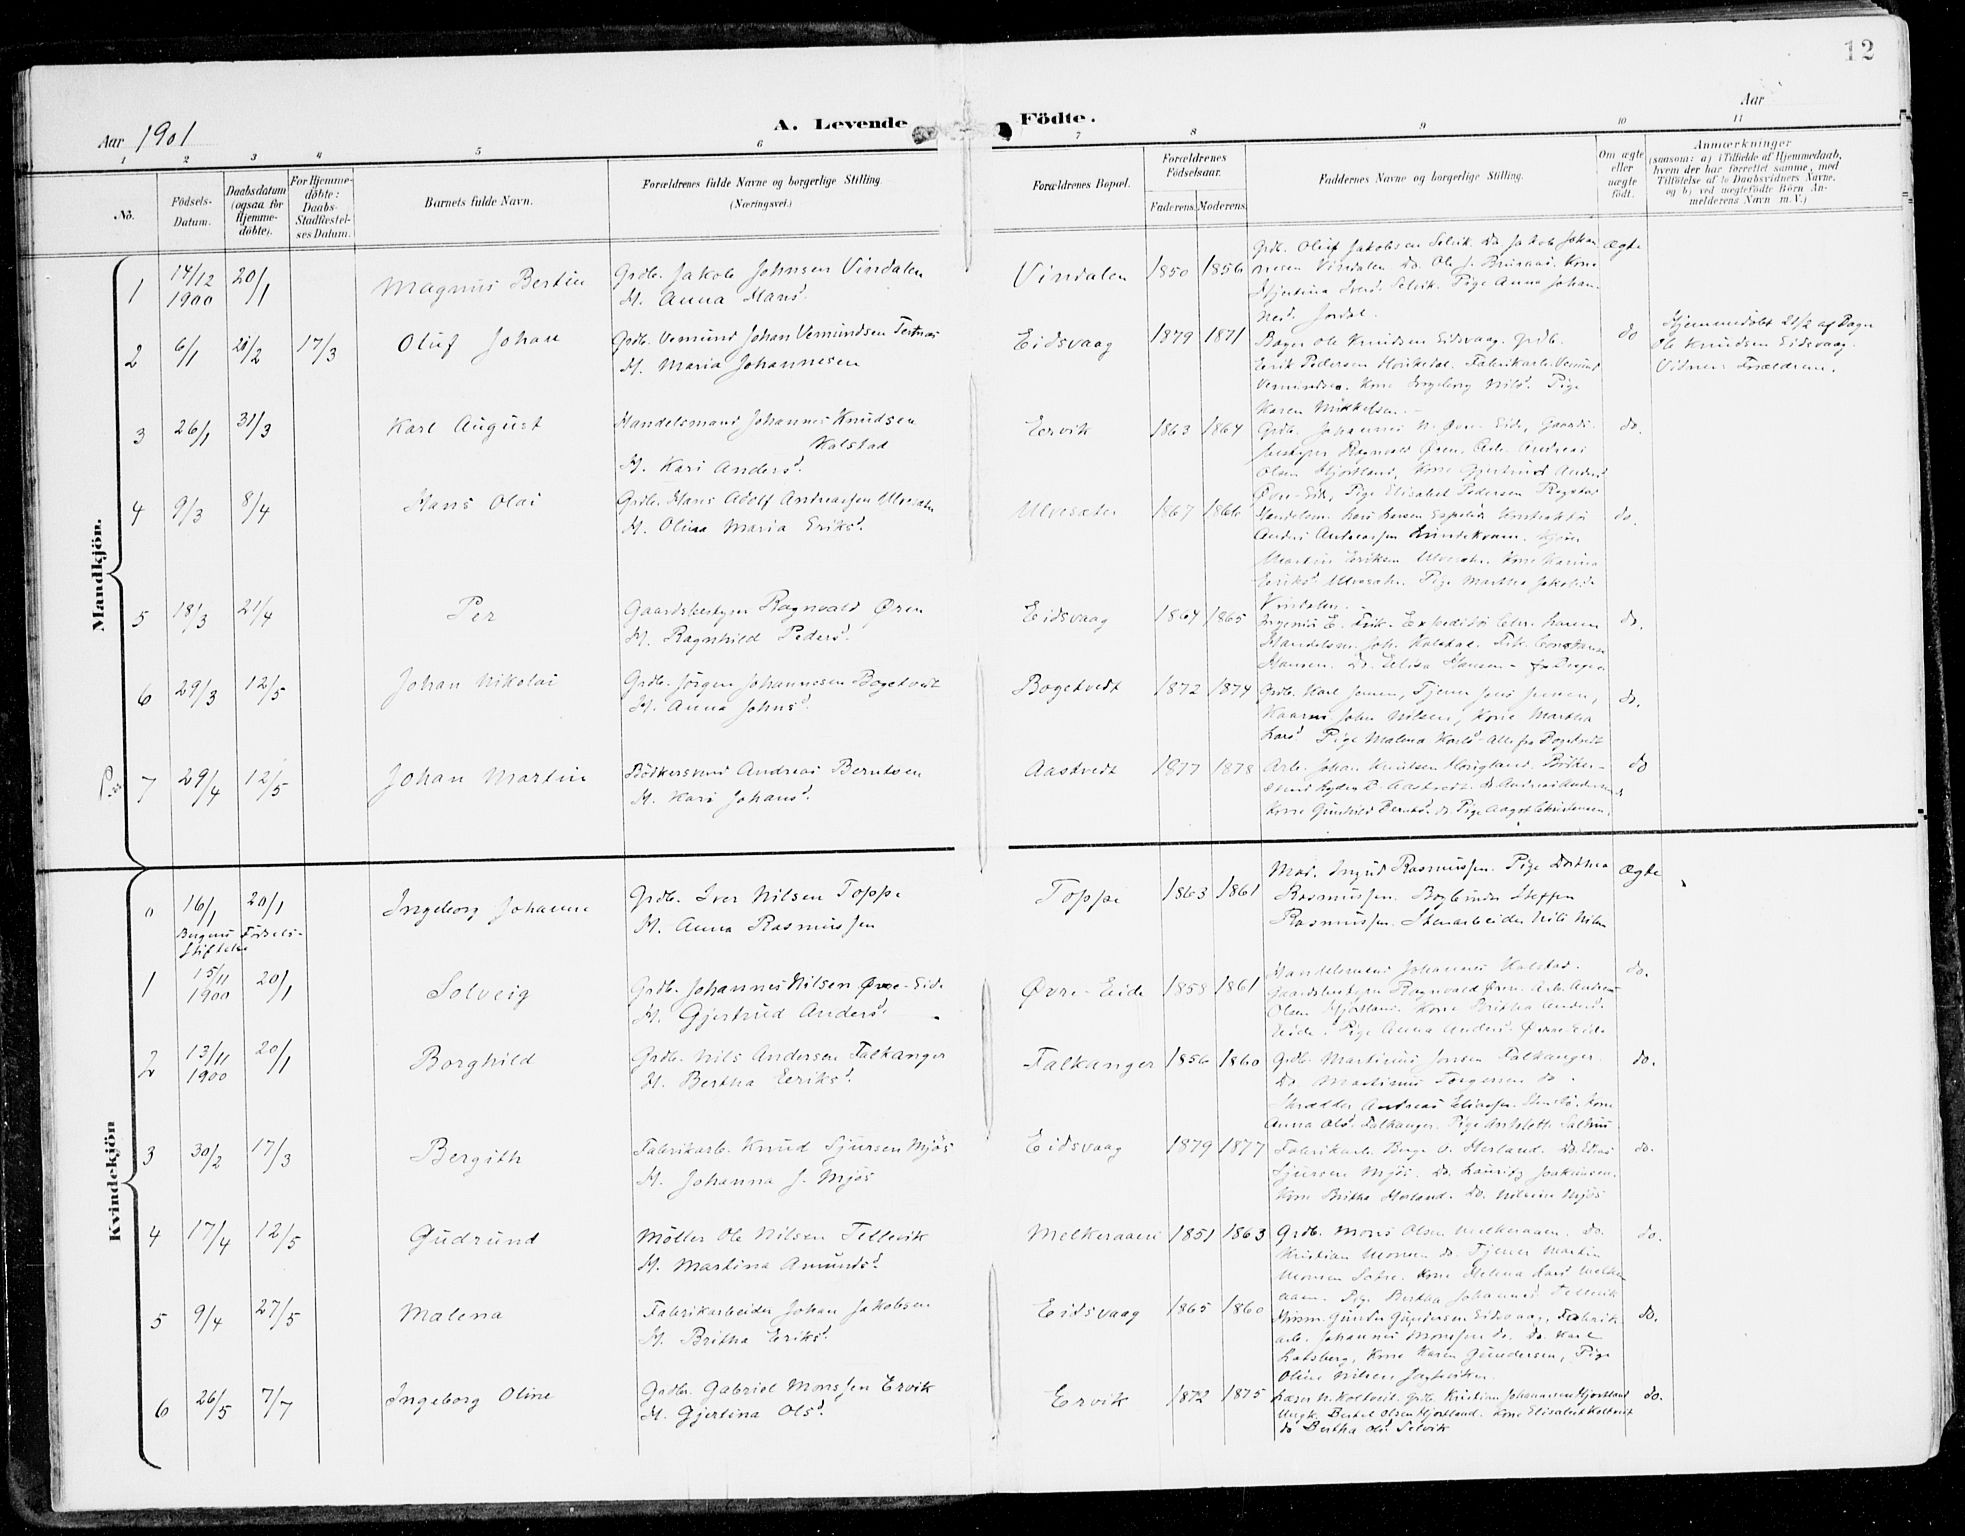 12
Aar 1901
A. Levende Födte.
Aar
1 2 3 4 5 6 7 8 9 10 11
No.
Födsels-Datum.
Daabsdatum (ogsaa for Hjemme-döbte).
For Hjemme-döbte: Daabs-Stadfæstel-ses Datum.
Barnets fulde Navn.
Forældrenes fulde Navne og borgerlige Stilling. (Næringsvei.)
Forældrenes Bopæl.
Forældrenes Födselsaar.
Faderens. Moderens.
Faddernes Navne og borgerlige Stilling.
Om ægte eller uægte födt.
Anmærkninger
(saasom: a) i Tilfælde af Hjemmedaab,
hvem der har forrettet samme, med
Tilföielse af to Daabsvidners Navne,
og b) ved uægtefödte Börn An-
melderens Navn m. V.)
Mandkjön.
1 14/12 1900 20/1 Magnus Bertin
Grdb. Jakob Johnsen Vindalen
H. Anna Hansd.
Vindalen 1850 1856
Grdb. Oluf Jakobsen Selvik. Do. Jakob Johan-
nesen Vindalen. Do. Ole J. Kone
Hjertina Iversd. Selvik. Pige Anna Johan-
nesd. Jordal.
Ægte
2 6/1 21/2 17/3 Oluf Johan
Grdb. Vemund Johan Vemundsen
H. Maria Johannesen
Eidsvaag 1879 1871
Bager Ole Knudsen Eidsvaag. Grdb.
Erik Pedersen Fabrikarb. Vemund
Vemundsen. Kone Ingeborg Nilsd. Pige
Karen Mikkelsen.
do
Hjemmedöbt 21/2 af Bager
Ole Knudsen Eidsvaag.
Vidner: Forældrene.
3 26/1 31/3 Karl August
Handelsmand Johannes Knudsen
Kolstad
H. Kari Andersd.
Eervik 1863 1864
Grdb. Johannes N. Øvre-Eide, Gaards-
bestyrer Ragnvald Øren. Arb. Andreas
Olsen Hjortland, Kone Gjertrud Andersd.
Øvre-Eide, Pige Elisabet Pedersen
do.
4 9/3 8/4 Hans Olai
Grdb. Hans Adolf Andreassen Ulvesæter
H. Olina Maria Eriksd.
Ulvesæter 1867 1866
Handelsm. Lars Larsen
Anders Andreassen
Martin Eriksen Ulvesæter. Kone Karina
Eriksd. Ulvesæter. Pige Martha Jakobsd.
Vindalen.
do.
5 18/3 21/4 Per
Gaardsbestyrer Ragnvald Øren
H. Ragnhild Pedersd.
Eidsvaag 1864 1865
Ingeniör E. Expeditör Chr. Larsen
Handelsm. Joh. Kolstad. Frk. Constance
Hansen. Do. Elisa Hansen
do.
6 29/3 12/5 Johan Nikolai
Grdb. Jörgen Johannesen Bogetvedt
H. Anna Johnsd.
Bogetvedt 1872 1874
Grdb. Karl Jensen, Tjener Jens Jensen,
John Nilsen, Kone Martha
Larsd. Pige Malena Karlsd. Alle fra Bogetvedt
do.
7 29/4 12/5 Johan Martin
Bödkersvend Andreas Berntsen
H. Kari Johansd.
Aastvedt 1877 1878
Arb. Johan Knudsen Böcker-
svend Aastvedt. do. Andreas Andersen
Kone Gunhild Berntsd. do. Pige Aagot Christensen.
do
Kvindekjön
0 16/1 20/1 Ingeborg Johanne
Bergens Födsels-
Stiftelse
Grdb. Iver Nilsen Toppe
H. Anna Rasmussen
Toppe 1863 1861
Mad. Ingrid Rasmussen. Pige Dorthea
Rasmussen. Bogbinder Steffen
Rasmussen. Stenarbeider Nils Nilsen
Ægte
1 15/11 1900 20/1 Solveig
Grdb. Johannes Nilsen Øvre-Eide
H. Gjertrud Andersd.
Øvre-Eide 1858 1861
Handelsmand Johannes Kolstad.
Gaardsbestyrer Ragnvald Øren. Arb. Andreas
Olsen Hjortland. Kone Britha Andersd.
Eide. Pige Anna Andersd. Øvre-Eide
do.
2 13/11 1900 20/1 Borghild
Grdb. Nils Andersen Falkanger
H. Bertha Eriksd.
Falkanger 1856 1860
Grdb. Martinus Jonsen Falkanger.
Do. Martinus Torgersen do.
Skrædder Andreas Eliassen. Kone
Anna Olsd. Falkanger. Pige Salhus
do.
3 30/2 17/3 Bergith
Fabrikarb. Knud Sjursen Mjös
H. Johanna J. Mjös
Eidsvaag 1879 1877
Fabrikarb. Berge O. Herland. Do. Elias
Sjursen Mjös. Do. Lauritz Joakimsen.
Kone Britha Herland. Do. Nilsine Mjös
do.
4 17/4 12/5 Gudrund
Möller Ole Nilsen Tellevik
H. Martina Amundsd.
Melkeraaen 1851 1863
Grdb. Mons Olsen Melkeraaen. Do.
Kristian Monsen do. Tjener Martin
Monsen Kone Helena Larsd. Melker-
aaen. Pige Bertha Johannesd. Tellevik
do.
5 9/4 27/5 Malena
Fabrikarbeider Johan Jakobsen
H. Britha Eriksd.
Eidsvaag 1865 1860
Husm. Gunder Gundersen Eidsvaag, Fabrik-
arb. Johannes Monssen do. do. Karl
Kone Karen Gundersen, Pige
Oline Nilsen
do.
6 26/5 7/7 Ingeborg Oline
Grdbr. Gabriel Monssen Ervik
H. Gjertina Olsd.
Ervik 1872 1875
Lasse N. Koltveit. Grdb. Kristian Johannesen Hjortland
Ungk. Bertel Olsen Hjortland. Kone Elisabet Koltveit
do Bertha Olsd. Selvik
do.